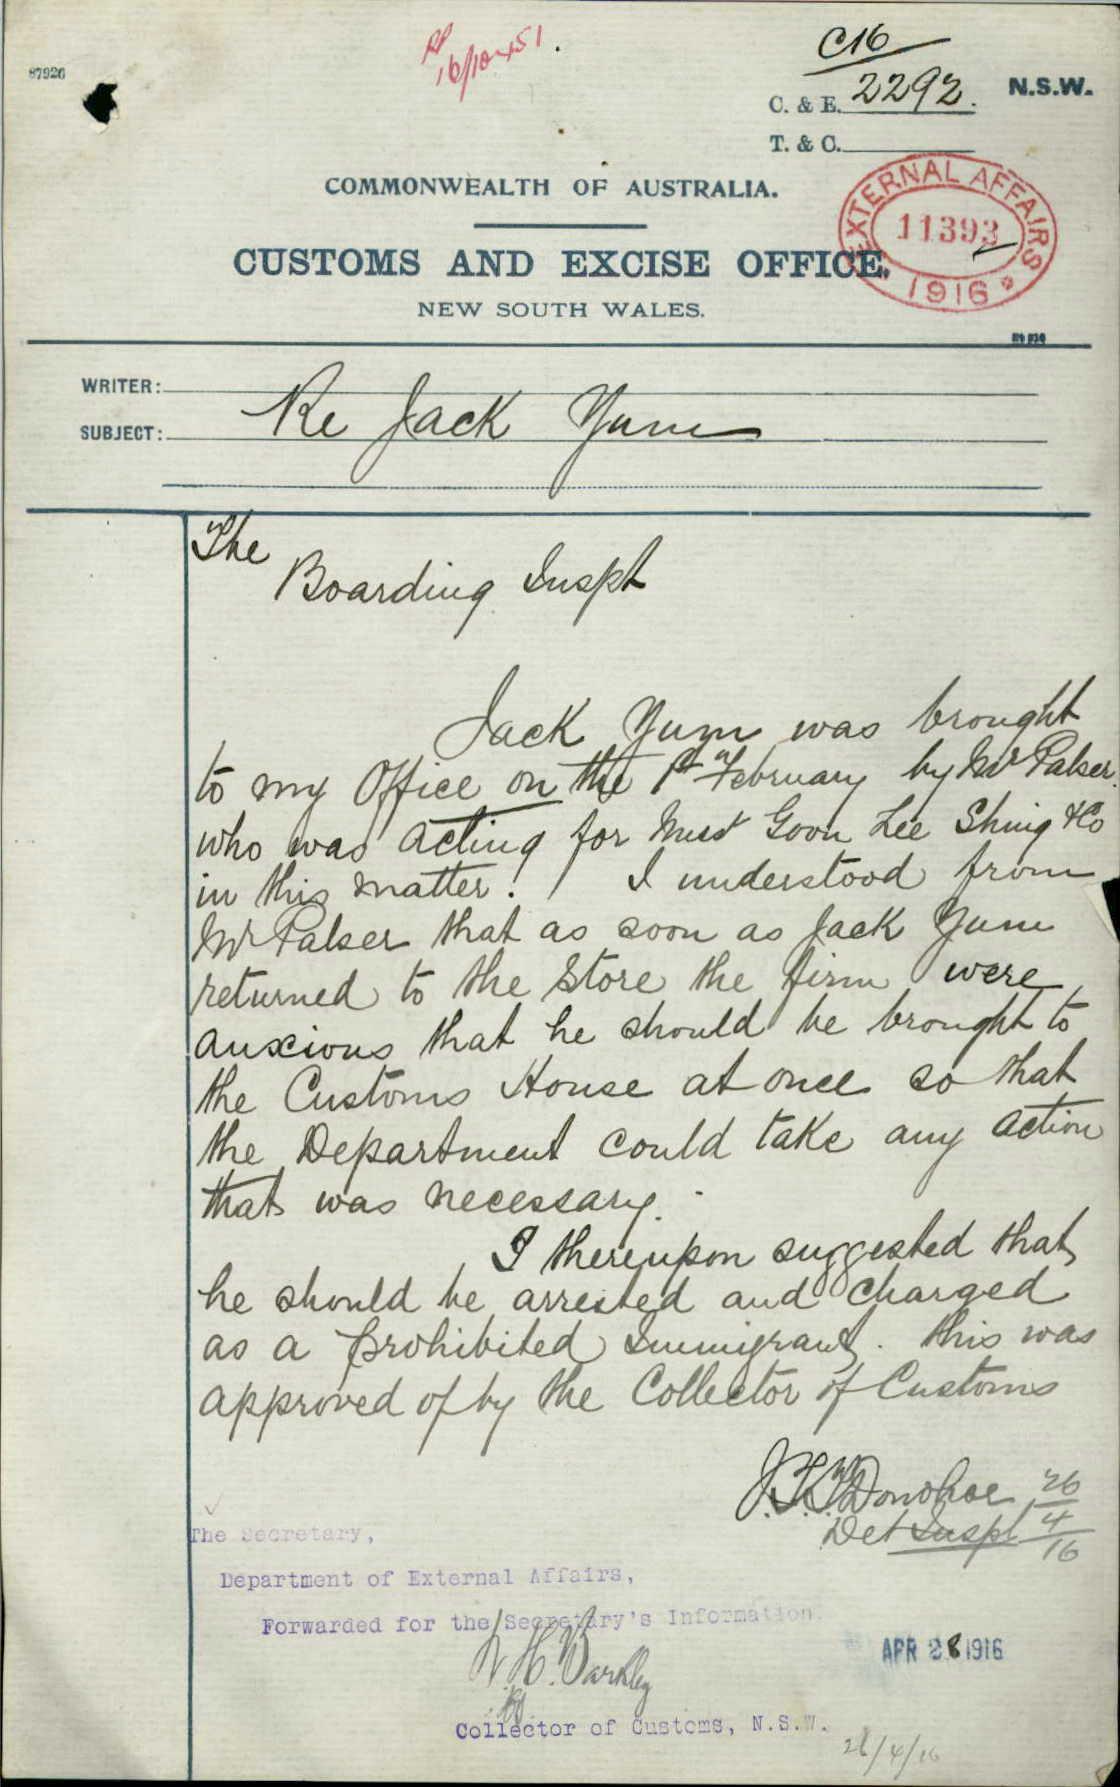 87926
16/10451.
C16
C. & E. 2292.
N.S.W.
T. & C.
COMMONWEALTH OF AUSTRALIA.
EXTERNAL AFFAIRS
11393
1916
CUSTOMS AND EXCISE OFFICE.
NEW SOUTH WALES.
WRITER:
SUBJECT: Re Jack Yum
The
Boarding Inspt
Jack Yum was brought
to my Office on the 1st February by Mr Palser
who was acting for Goon Lee Shing & Co
in this matter. I understood from
Mr Palser that as soon as Jack Yum
returned to the Store the firm were
anxious that he should be brought to
the Customs House at once so that
the Department could take any action
that was necessary.
I thereupon suggested that
he should be arrested and charged
as a prohibited Immigrant. this was
approved of by the Collector of Customs
Donohoe 26
Det Inspt 4
16
The Secretary,
Department of External Affairs,
Forwarded for the Secretary's Information.
W.H. Barkley
APR 28 1916
Collector of Customs, N.S.W.
28/4/16